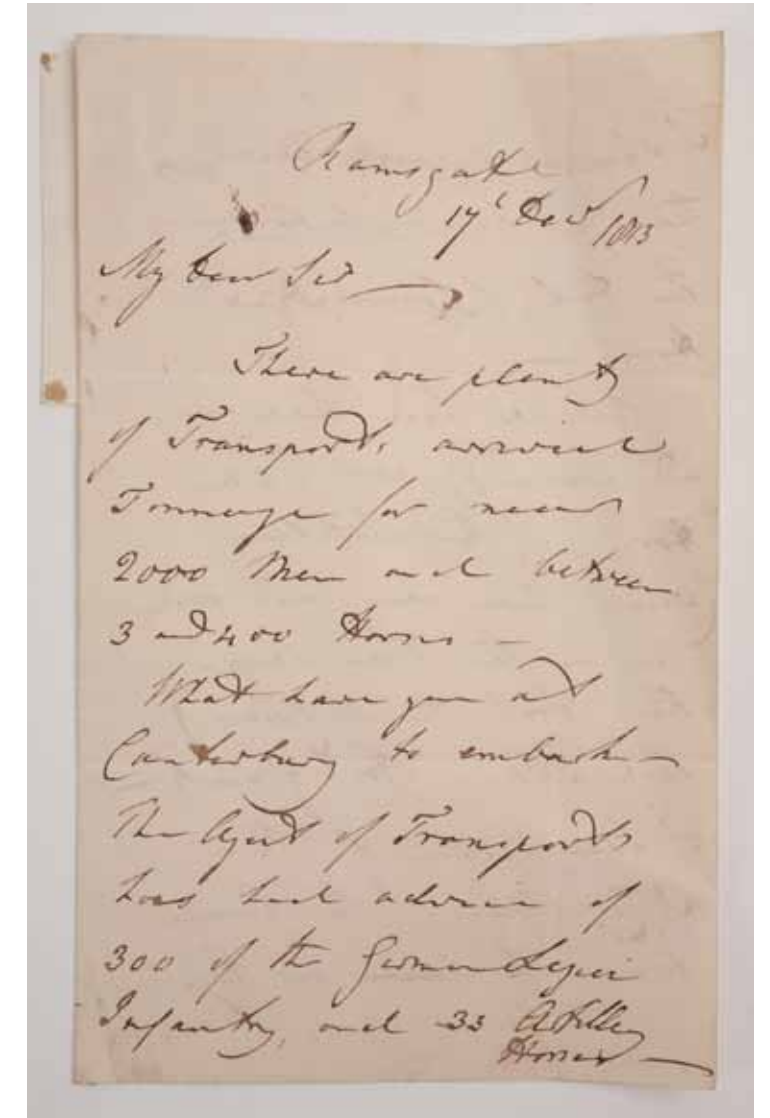 Ramsgate
17t Decr 1813
My dear Sir
There are plenty
of Transports arrived
Tonnage for near
2000 Men and between
3 and 400 Horses –
What have you at
Canterbury to embark –
The Agent of Transports
has had advice of
300 of the German Legion
Infantry, and 33 Artillery
Horses –